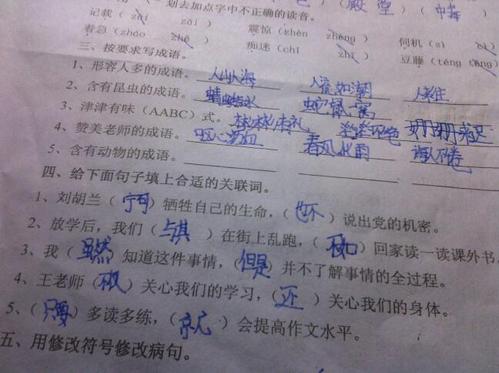 划去加点字中不正确的读音。
记载（zǎi zài） 震惊（zhèn zhèng） 伺机（sì
着急（zháo zhāo） 痴迷（chī zhī） 豆藤（téng
三、按要求写成语。
1、形容人多的成语。人山人海 人来人往
2、含有昆虫的成语。蜻蜓点水
3、津津有味（AABC）式。彬彬有礼 姗姗来迟
4、赞美老师的成语。呕心沥血 春风化雨 诲人不倦
5、含有动物的成语。
四、给下面句子填上合适的关联词。
1、刘胡兰（宁可）牺牲自己的生命，（也不）说出党的机密。
2、放学后，我们（与其）在街上乱跑，（不如）回家读一读课外书。
3、我（虽然）知道这件事情，（但是）并不了解事情的全过程。
4、王老师（ ）关心我们的学习，（还）关心我们的身体。
5、（只要）多读多练，（就）会提高作文水平。
五、用修改符号修改病句。